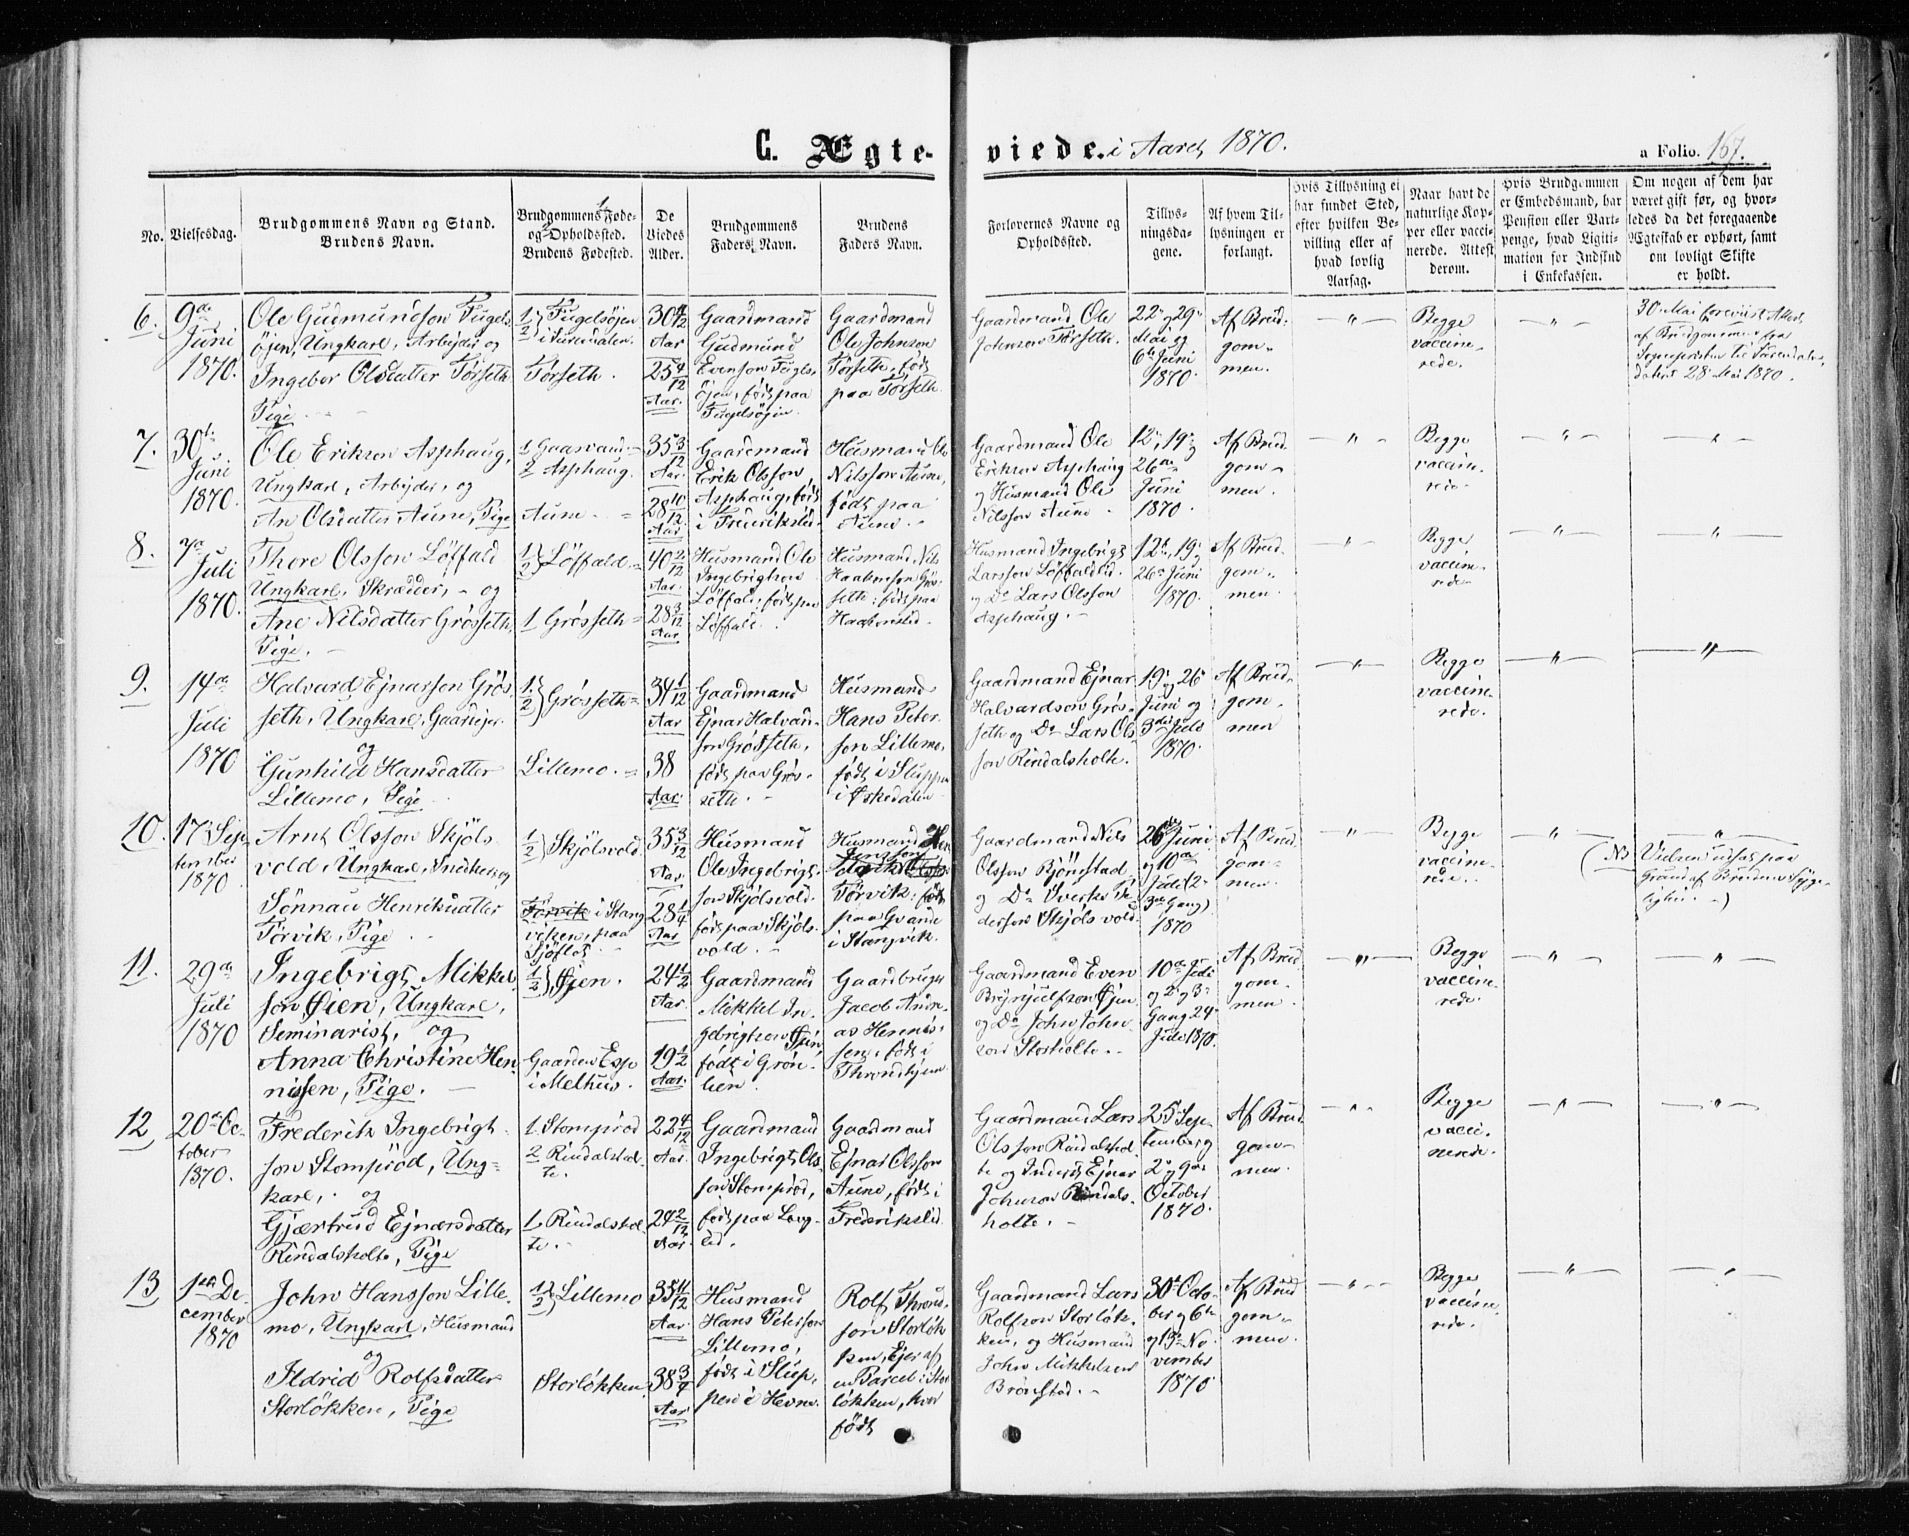 C. Ægteviede. i Aaret 1870.
a Folio. 167.
No.
Vielsesdag.
Brudgommens Navn og Stand.
Brudens Navn.
Brudgommens Føde-
og Opholdssted.
Brudens Fødested.
De
Viedes
Alder.
Brudgommens
Faders Navn.
Brudens
Faders Navn.
Forlovernes Navne og
Opholdssted.
Tillys-
ningsda-
gene.
Af hvem Til-
lysningen er
forlangt.
Hvis Tillysning ei
har fundet Sted,
efter hvilken Be-
villing eller af
hvad lovlig
Aarsag.
Naar havt de
naturlige Kop-
per eller vacci-
nerede. Attest
derom.
Hvis Brudgommen
er Embedsmand, har
Pension eller Vart-
penge, hvad Ligiti-
mation for Indskud
i Enkekassen.
Om nogen af dem har
været gift før, og hvor-
ledes da det foregaaende
Ægteskab er ophørt, samt
om lovligt Skifte
er holdt.
6.
9de
Juni
1870.
Ole Gudmundson Fugels-
öjen, Ungkarl, Arbejder og
Ingebor Olsdatter Törseth
Pige
1/2 } Fugelsöjen
i Surendalen.
Törseth.
30 4/12
Aar
25 4/12
Aar.
Gaardmand
Gudmund
Evenson Fugels-
öjen, född paa
Fugelsöjen.
Gaardmand
Ole Johnson
Törseth, födt
paa Törseth.
Gaardmand Ole
Johnson Törseth.
22 og 29
Mai og
6te Juni
1870.
Af Brud-
gom-
men.
— " —
Begge
vaccine-
rede.
— " —
30 Mai forevist Attest
af Brudgommen fra
Sognepresten til Surendalen,
dateret 28 Mai 1870.
7.
30te
Juni
1870.
Ole Erikson Asphaug,
Ungkarl, Arbejder, og
An Olsdatter Aune, Pige
1 Gaasvand
2 Asphaug.
Aune
35 3/12
Aar.
28 10/12
Aar
Gaardmand
Erik Olsson
Asphaug, födt
i Frederikslid.
Husmand Ole
Nilsson Aune,
födt paa
Aune.
Gaardmand Ole
Erikson Asphaug
og Husmand Ole
Nilsson Aune
12, 19 og
26de
Juni
1870.
Af Brud-
gom-
men.
— " —
Begge
vaccine-
rede.
— " —
— " —
8.
7de
Juli
1870.
Thore Olsson Löffald
Ungkarl, Skrædder, og
Ane Nilsdatter Grösseth,
Pige.
1/2 } Löffald
1 Grösseth
40 2/12
Aar
28 3/12
Aar
Husmand Ole
Ingebrigtson
Löffald, födt paa
Löffald.
Husmand Nils
Haakonson Grös-
seth, födt paa
Haakonslid.
Husmand Ingebrigt
Larsson Löffaldlid
og Do Lars Olsson
Asphaug.
12te, 19 og
26 Juni
1870.
Af Brud-
gom-
men.
— " —
Begge
vaccine-
rede.
— " —
— " —
9.
14de
Juli
1870
Halvard Ejnarson Grös-
seth, Ungkarl, Gaardejer
og
Gunhild Hansdatter
Lillemo, Pige
1/2 } Grösseth
Lillemo.
34 1/12
Aar
38
Aar.
Gaardmand
Ejnar Halvard-
son Grösseth,
födt paa Grös-
seth.
Husmand
Hans Peter-
son Lillemo,
födt i Sluppen
i Eskedalen
Gaardmand Ejnar
Halvardson Grös-
seth og Do Lars Ols-
son Rindalsholte.
19 og 26
Juni og
3die Juli
1870.
Af Brud-
gom-
men
— " —
Begge
vaccine-
rede.
— " —
— " —
10.
17 Sep-
tember
1870
Arnt Olsson Skjöls-
vold, Ungkarl, Snedker og
Sönnau Henriksdatter
Törvik, Pige
1/2 } Skjölsvold
i Stang-
viken, paa
Sjöflot
35 3/12
Aar.
28 1/4
Aar
Husmand
Ole Ingebrigt-
son Skjölsvold,
födt paa Skjöls-
vold.
Husmand
Törvik, födt
paa Qvande
i Stangvik.
Gaardmand Nils
Olsson Björnstad
og Do Sverke Pe-
derson Skjölsvold
26 Juni
og 10de
Juli (2
3die Gang)
1870
Af Brud-
gom-
men.
— " —
Begge
vaccine-
rede.
— " —
— " —
(NB Vielsen udsat paa
Grund af Brudens Syge-
lighed.)
11.
29de
Juli
1870
Ingebrigt Mikkel-
son Øien, Ungkarl,
Seminarist, og
Anna Christine Hen-
nissen, Pige.
1/2 } Øjen.
Gaarden Esp
i Melhus.
24 1/2
Aar.
19 1/2
Aar.
Gaardmand
Mikkel In-
gebrigtson Øjen,
födt i Grön-
lien.
Gaardbruger
Jacob Andre-
as Hennis-
sen, födt i
Throndhjem
Gaardmand Even
Brynjulfson Øjen
og Do John John-
son Storholte.
10de Juli
og 2 og 3
Gang 24
Juli 1870.
Af Brud-
gom-
men.
— " —
Begge
vaccine-
rede.
— " —
— " —
12
20de Oc-
tober
1870.
Frederik Ingebrigt-
son Stomprød, Ung-
karl, og
Gjærtrud Ejnarsdatter
Rindalsholte, Pige
1 Stomprød
2 Rindalshol-
te.
1 Rindalshol-
te.
22 4/12
Aar.
24 2/12
Aar.
Gaardmand
Ingebrigt Ols-
son Stomprød,
födt paa Lang-
lid.
Gaardmand
Ejnar Olsson
Aune, födt i
Frederikslid
Gaardmand Lars
Olsson Rindalshol-
te og Inderst Ejnar
Johnson Rindals-
holte.
25 Sep-
tember og
2 og 9de
October
1870.
Af Brud-
gom-
men.
— " —
Begge
vacci-
nerede.
— " —
— " —
13
1ste De-
cember
1870
John Hansson Lille-
mo, Ungkarl, Husmand
og
Ildrid Rolfsdatter
Storløkken, Pige
1/2 } Lillemo
Storløkken.
33 11/12
Aar.
38 3/4
Aar
Husmand
Hans Peterson
Lillemo,
födt i Slup-
pen i Hevne.
Rolf Thron-
son Storløk-
ken, Ejer af
en Parcel i Stor-
løkken, hvor
födt
Gaardmand Lars
Rolfson Storløk-
ken, og Husmand
John Mikkelson
Brönstad.
30 Octo-
ber og 6te
og 13 No-
vember
1870
Af Brud-
gom-
men.
— " —
Begge
vaccine-
rede.
— " —
— " —